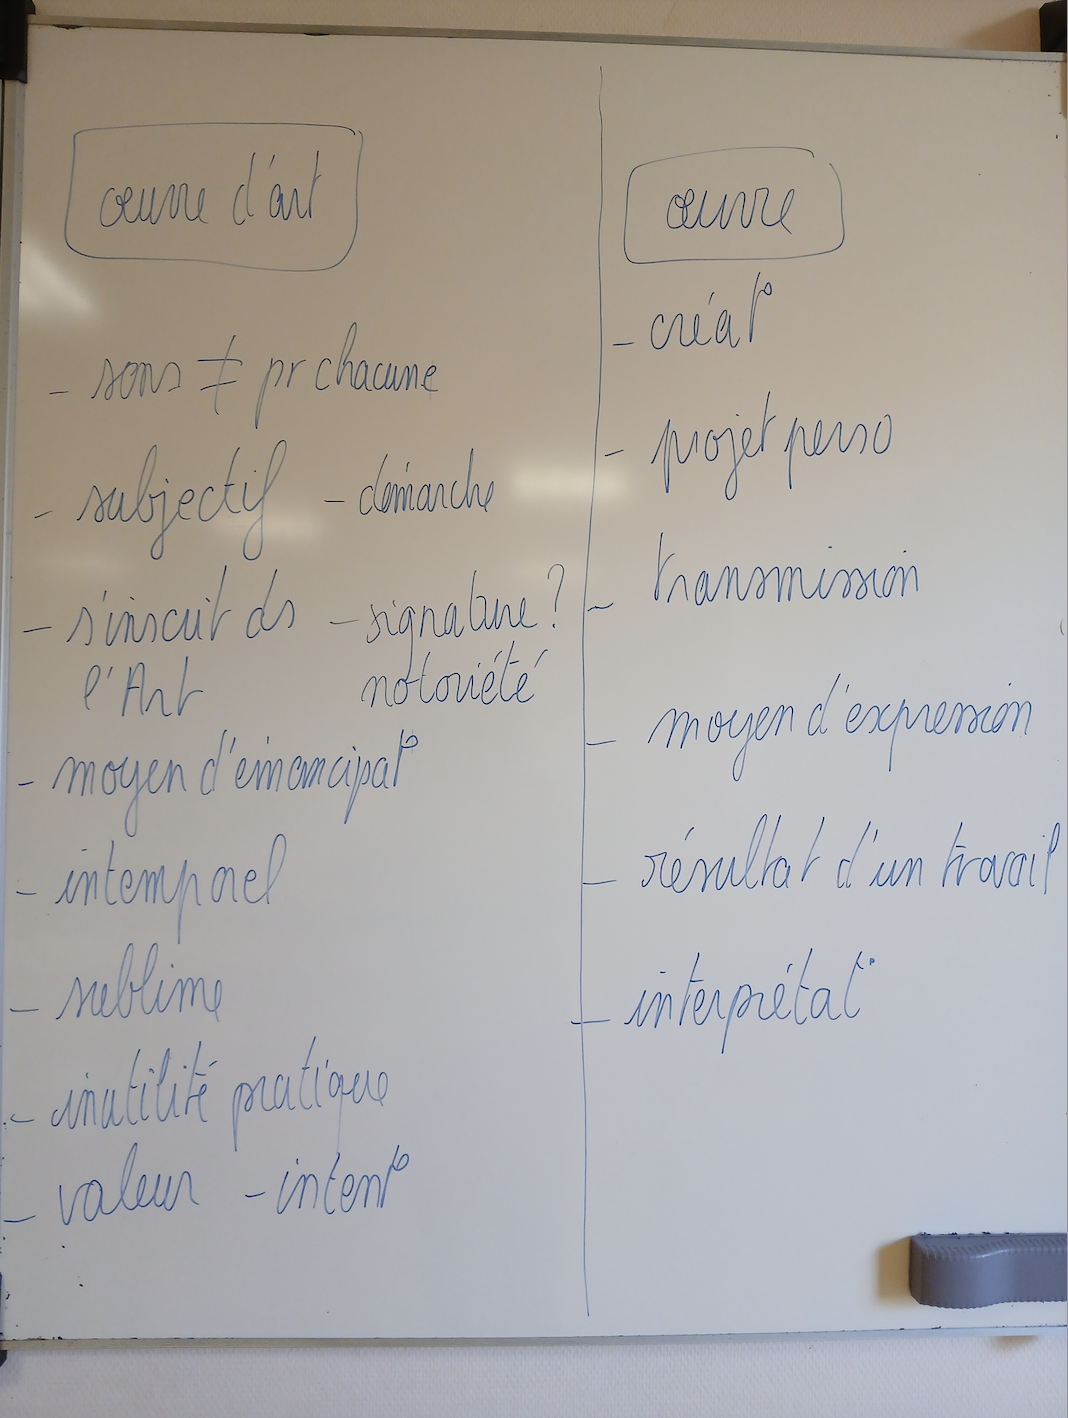 œuvre d'art
- sons ≠ pr chacune
- subjectif - démarche
- s'inscrit ds - signature ?
l'Art notoriété
- moyen d'émancipat°
- intemporel
- sublime
- inutilité pratique
- valeur - intent°
œuvre
- créat°
- projet perso
- transmission
- moyen d'expression
- résultat d'un travail
- interprétat°